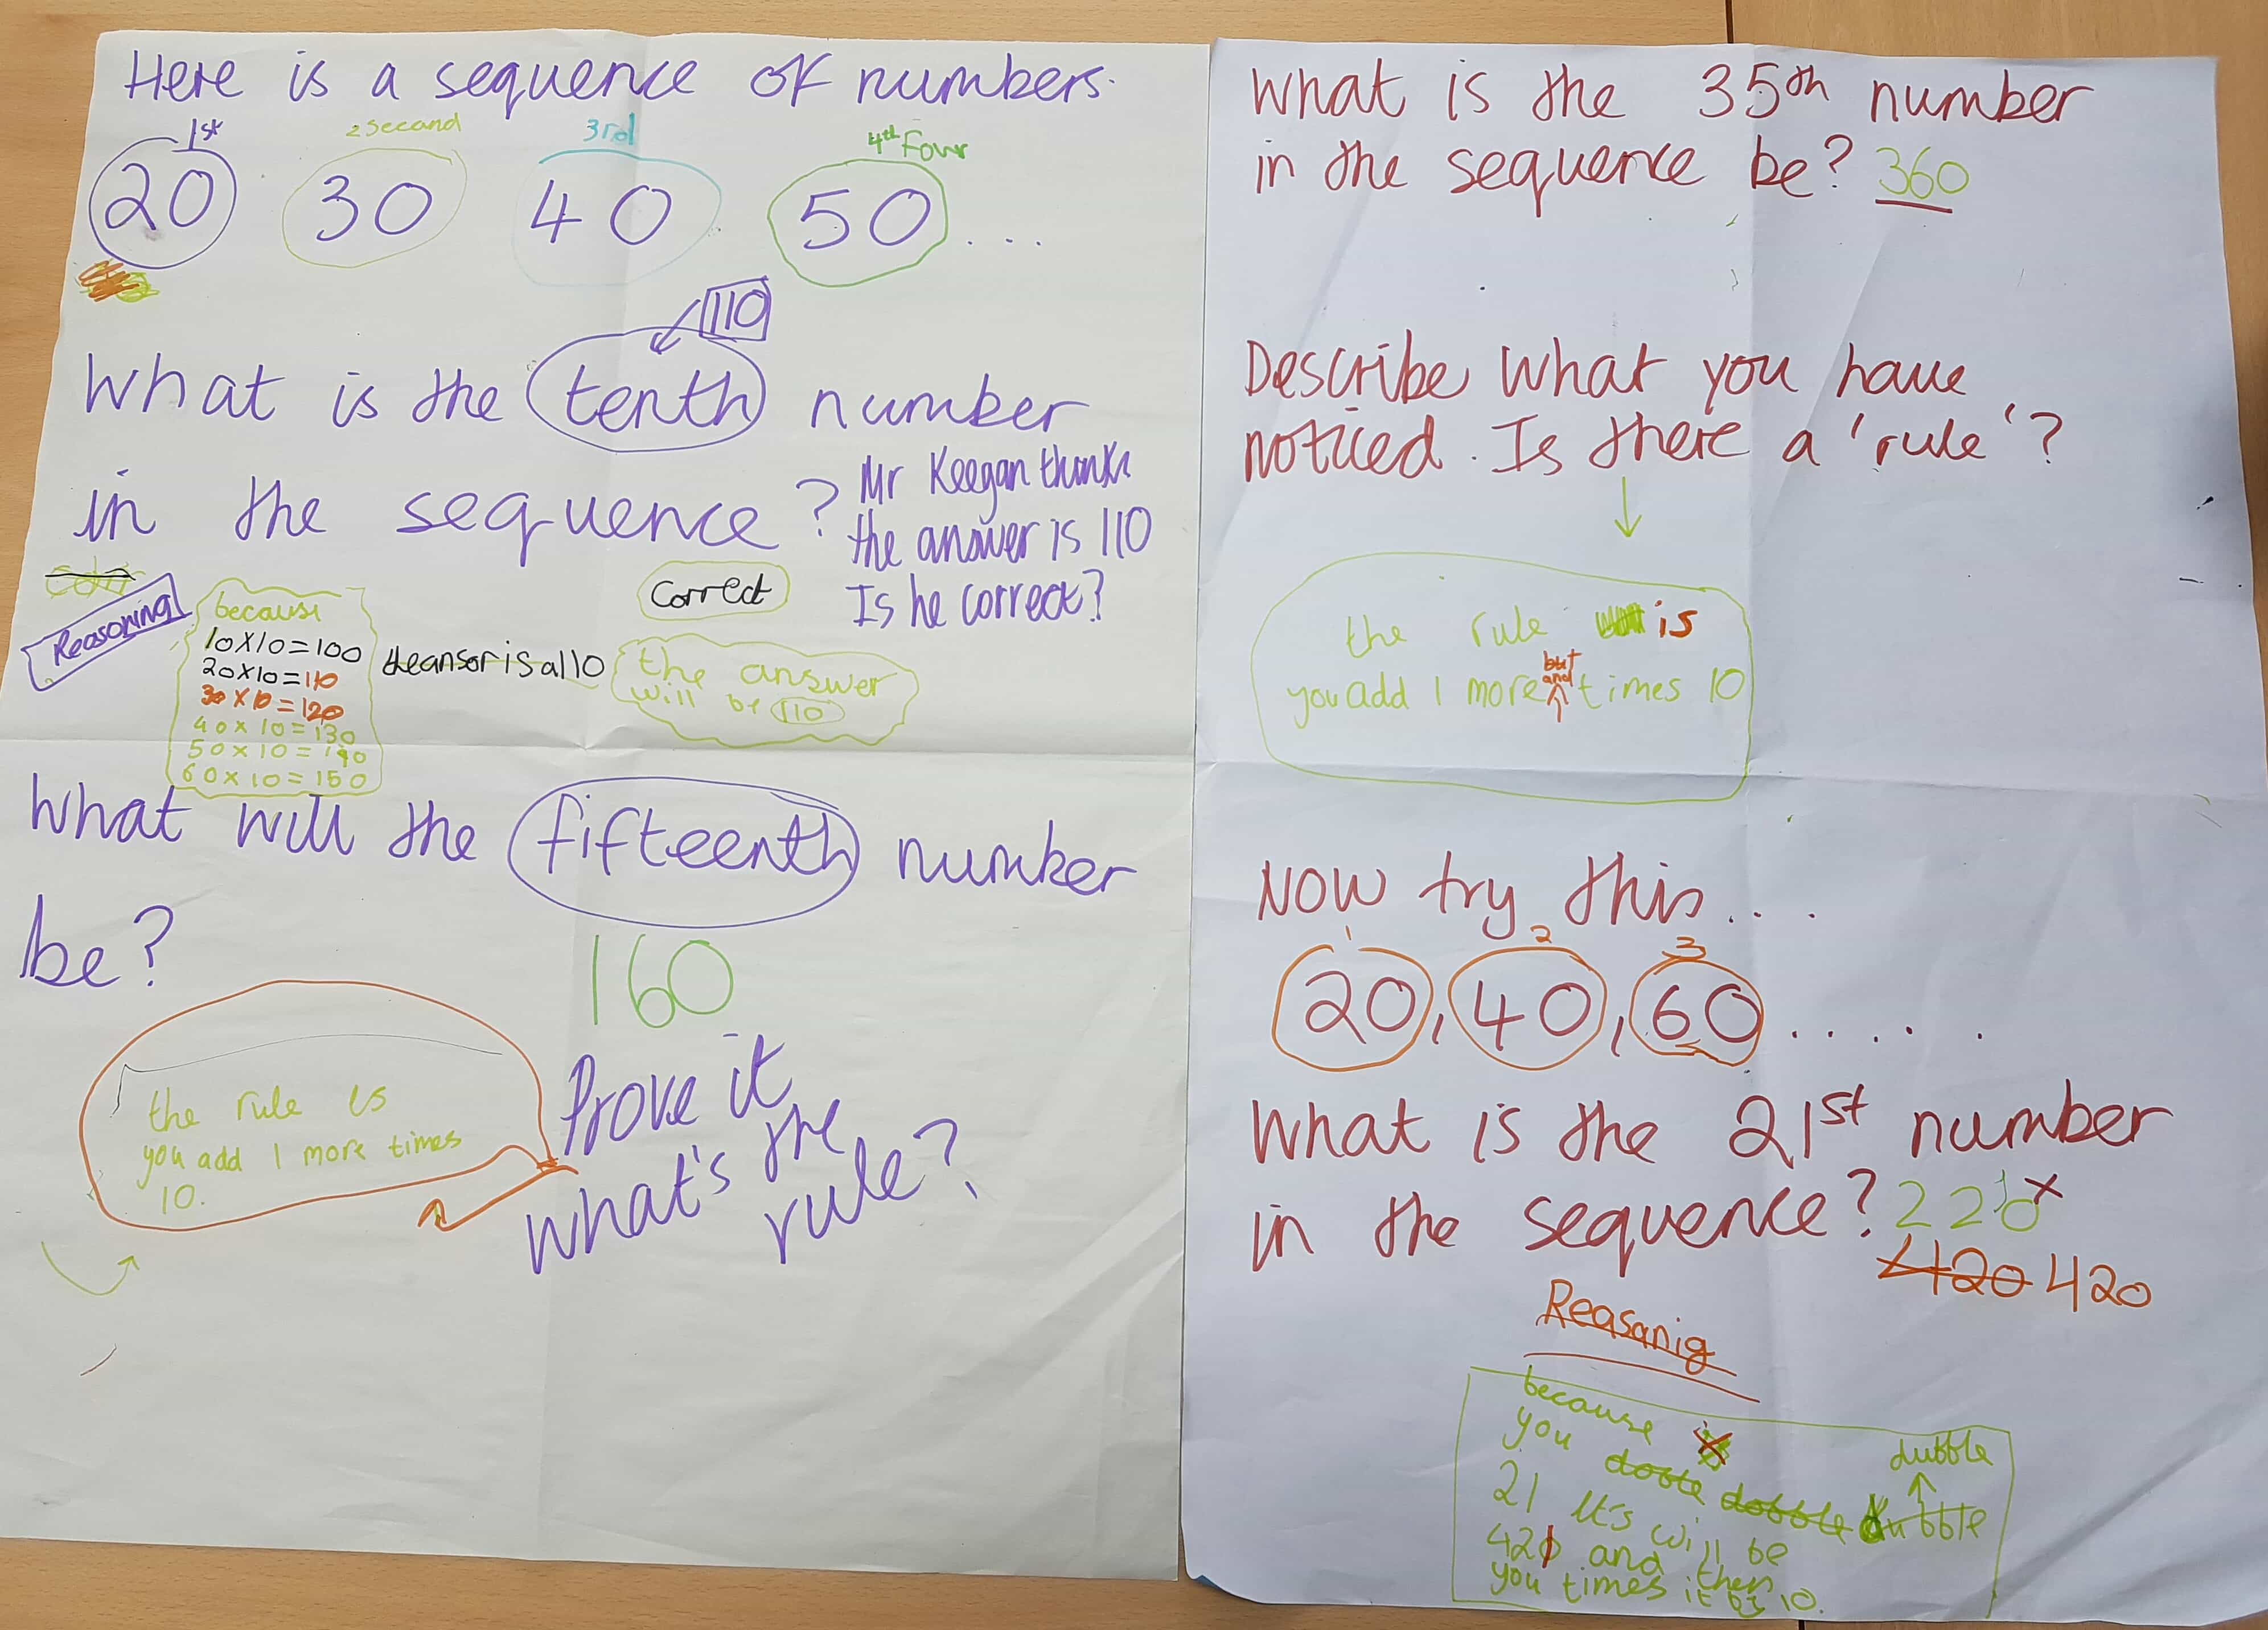 Here is a sequence of numbers.
1st 2second 3rd 4th Four
20 30 40 50 ...
110
What is the tenth number
in the sequence?
Mr Keegan thinks
the answer is 110
Is he correct?
Correct
Reasoning
because
10x10=100
20x10=110
30x10=120
40x10=130
50x10=140
60x10=150
theansorisa110
the answer
will be 110
What will the fifteenth number
be?
160
Prove it
what's the
rule?
the rule is
you add 1 more times
10.
What is the 35th number
in the sequence be? 360
Describe what you have
noticed. Is there a 'rule'?
the rule is
but
and
you add 1 more times 10
Now try this....
1 2 3
20, 40, 60 ......
What is the 21st number
in the sequence? 220 x
420 420
Reasanig
because
you doble dobble dubble
dubble
21 It's will be
420 and then
you times it by 10.